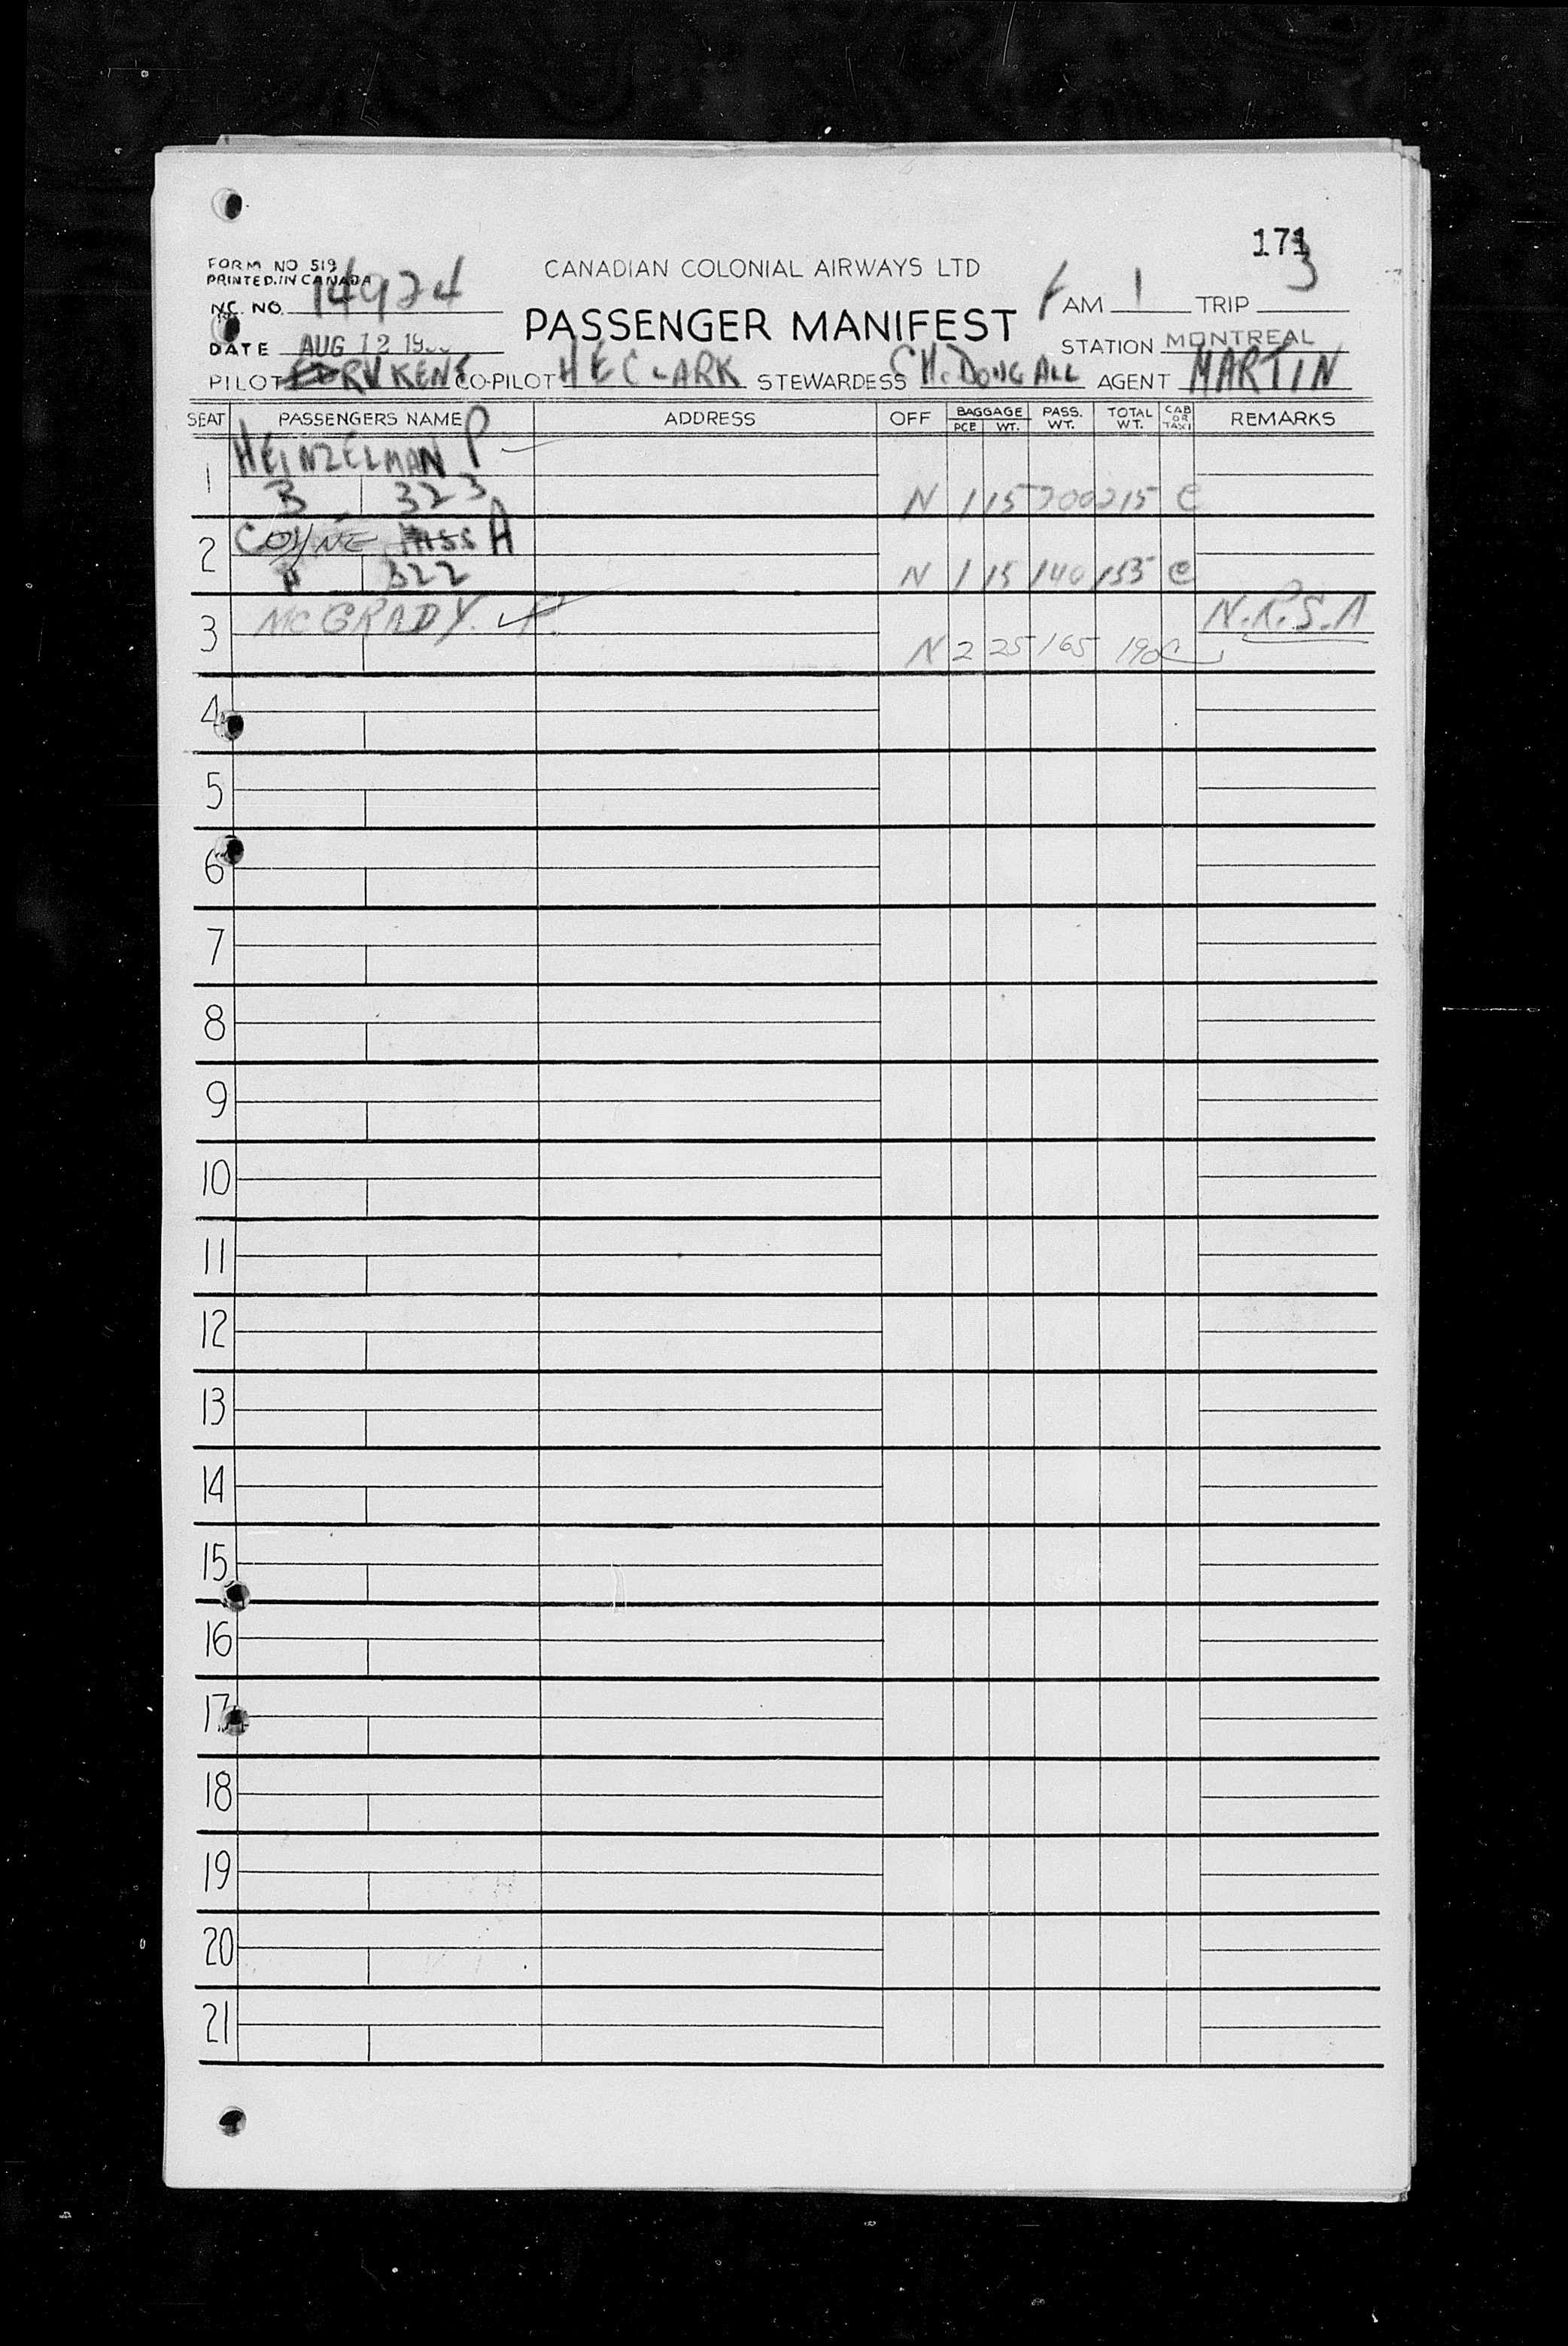 171
FORM NO 519
PRINTED.IN CANADA
CANADIAN COLONIAL AIRWAYS LTD
NC. NO. 14924
PASSENGER MANIFEST
AM 1 TRIP 3
DATE AUG 12 19
STATION MONTREAL
PILOT RV KENT CO-PILOT H E CLARK STEWARDESS McDOUGALL AGENT MARTIN
SEAT PASSENGERS NAME ADDRESS OFF BAGGAGE PCE WT. PASS. WT. TOTAL WT. CAB OR TAXI REMARKS
1 HEINZELMAN P
B 323 N 1 15 200 215 C
2 COYNE MISS A
322 N 1 15 140 155 C
3 MCGRADY. N.R.S.A
N 2 25 165 190 C
4
5
6
7
8
9
10
11
12
13
14
15
16
17
18
19
20
21